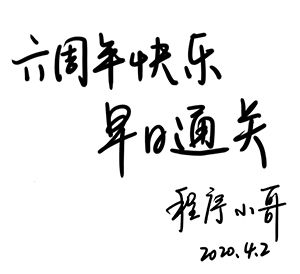 六周年快乐
早日通关
程序小哥
2020.4.2